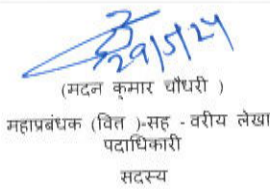 29/5/24
(मदन कुमार चौधरी )
महाप्रबंधक (वित )-सह - वरीय लेखा
पदाधिकारी
सदस्य